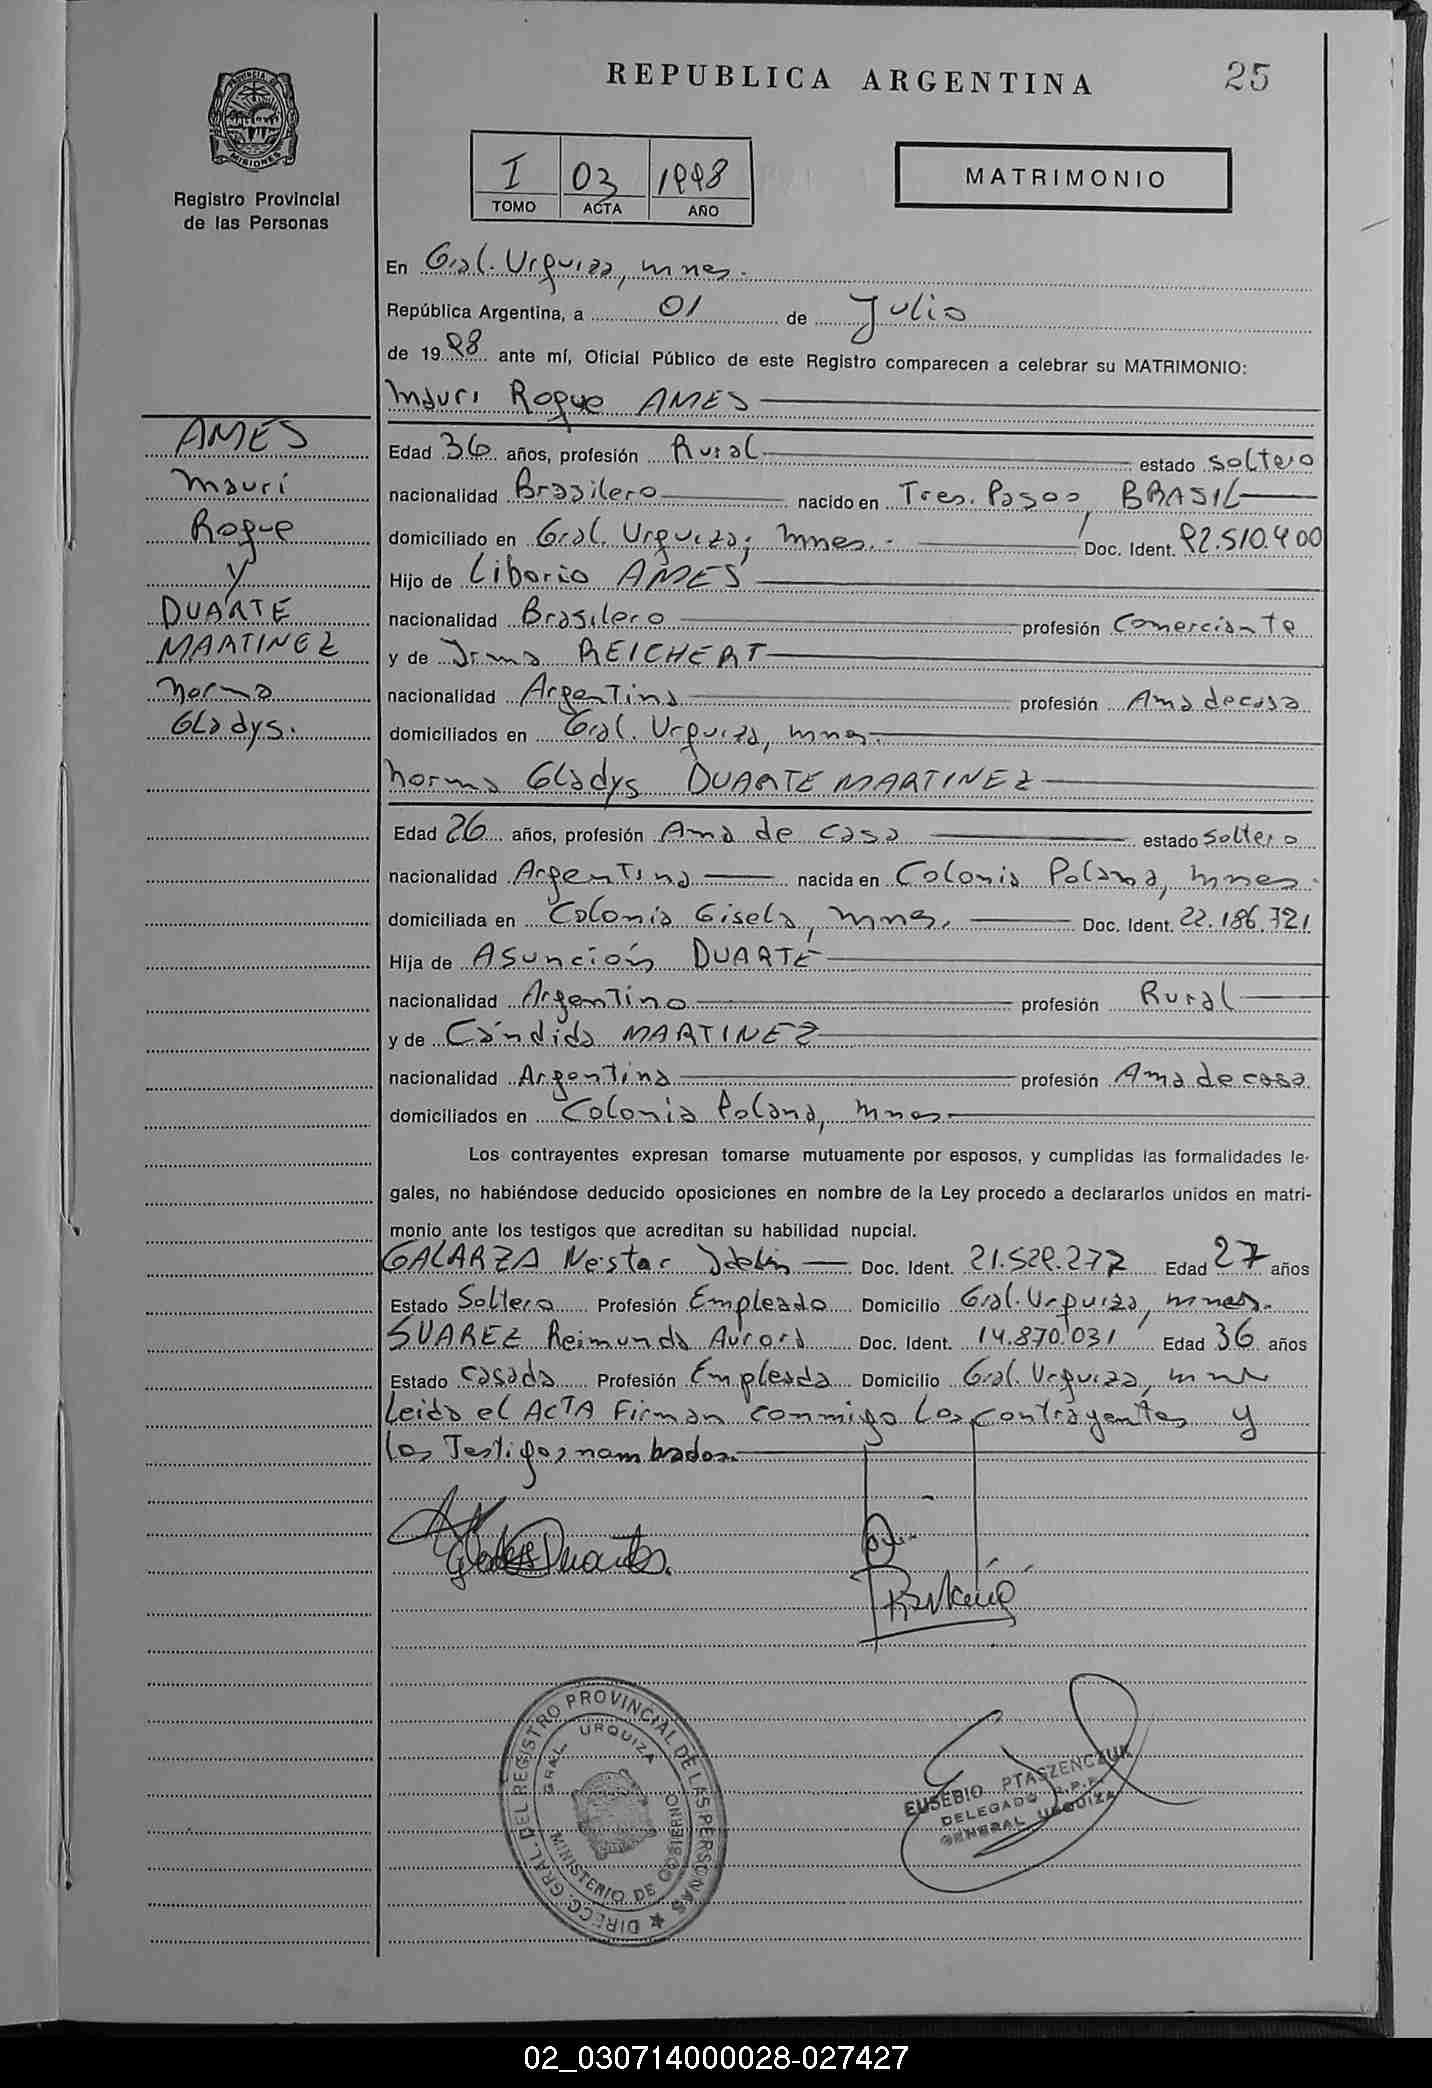 REPUBLICA ARGENTINA
25
PROVINCIA DE
MISIONES
Registro Provincial
de las Personas
I 03 1998
TOMO ACTA AÑO
MATRIMONIO
En Gral. Urquiza, mnes.
República Argentina, a 01 de Julio
de 1998 ante mí, Oficial Público de este Registro comparecen a celebrar su MATRIMONIO:
Mauri Roque AMES
AMES
Mauri
Roque
y
DUARTE
MARTINEZ
Norma
GLadys.
Edad 36 años, profesión Rural estado soltero
nacionalidad Brasilero nacido en Tres Pasos, BRASIL
domiciliado en Gral. Urquiza, mnes. Doc. Ident. 92.510.400
Hijo de Liborio AMES
nacionalidad Brasilero profesión Comerciante
y de Irma REICHERT
nacionalidad Argentina profesión Ama de casa
domiciliados en Gral. Urquiza, mnes.
Norma GLadys DUARTE MARTINEZ
Edad 26 años, profesión Ama de casa estado soltera
nacionalidad Argentina nacida en Colonia Polana, mnes.
domiciliada en Colonia Gisela, mnes. Doc. Ident. 22.186.721
Hija de Asunción DUARTE
nacionalidad Argentino profesión Rural
y de Cándida MARTINEZ
nacionalidad Argentina profesión Ama de casa
domiciliados en Colonia Polana, mnes
Los contrayentes expresan tomarse mutuamente por esposos, y cumplidas las formalidades le-
gales, no habiéndose deducido oposiciones en nombre de la Ley procedo a declararlos unidos en matri-
monio ante los testigos que acreditan su habilidad nupcial.
GALARZA Nestor Doc. Ident. 21.529.277 Edad 27 años
Estado Soltero Profesión Empleado Domicilio Gral. Urquiza, mnes.
SUAREZ Reimunda Aurora Doc. Ident. 14.870.031 Edad 36 años
Estado casada Profesión Empleada Domicilio Gral. Urquiza, mnes
Leida el ACTA Firman conmigo los contrayentes y
los Testigos nombrados.
Gladys Duarte
DIRECC. GRAL. DEL REGISTRO PROVINCIAL DE LAS PERSONAS
GRAL. URQUIZA
MINISTERIO DE GOBIERNO
EUSEBIO PTASZENCZUK
DELEGADO R.P.P.
GENERAL URQUIZA
02_030714000028-027427